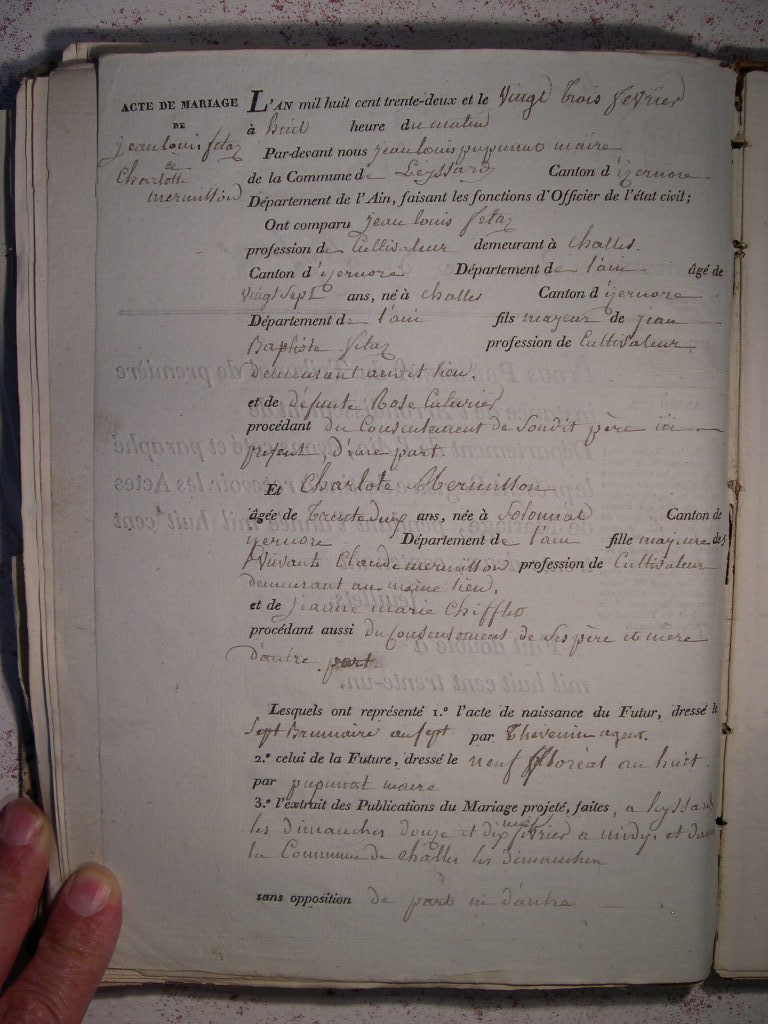 ACTE DE MARIAGE
DE
jean louis fetaz
&
Charlotte
mermillon
L'AN mil huit cent trente-deux et le vingt trois fevrier
à huit heure du matin
Par-devant nous jean louis pupunat maire
de la Commune de Leyssard Canton d'izernore
Département de l'Ain, faisant les fonctions d'Officier de l'état civil;
Ont comparu jean louis fetaz
profession de Cultivateur demeurant à challes.
Canton d'izernore Département de l'ain âgé de
vingt sept ans, né à challes Canton d izernore
Département de l'ain fils mayeur de jean
Baptiste fetaz profession de Cultivateur
demeurant audit lieu.
et de défunte Rose
procédant du Consentement de Soudit père ici
présent, d'une part
Et Charlote Mermillon
âgée de trente deux ans, née à Solonnat Canton de
izernore Département de l'ain fille mayeure de s
vivants Claude mermillon profession de Cultivateur
demeurant au même lieu.
et de jeanne marie Chifflet
procédant aussi du Consentement de Ses père et mère
d'autre part.
Lesquels ont représenté 1.º l'acte de naissance du Futur, dressé le
Sept Brumaire an sept par Thevenin agent.
2.º celui de la Future, dressé le neuf floréal an huit
par pupunat maire
3.º l'extrait des Publications du Mariage projeté, faites, a leyssard
les dimanches douze et dix neuf fevrier a midy. et dans
la Commune de challes les dimanches
sans opposition de part ni d'autre